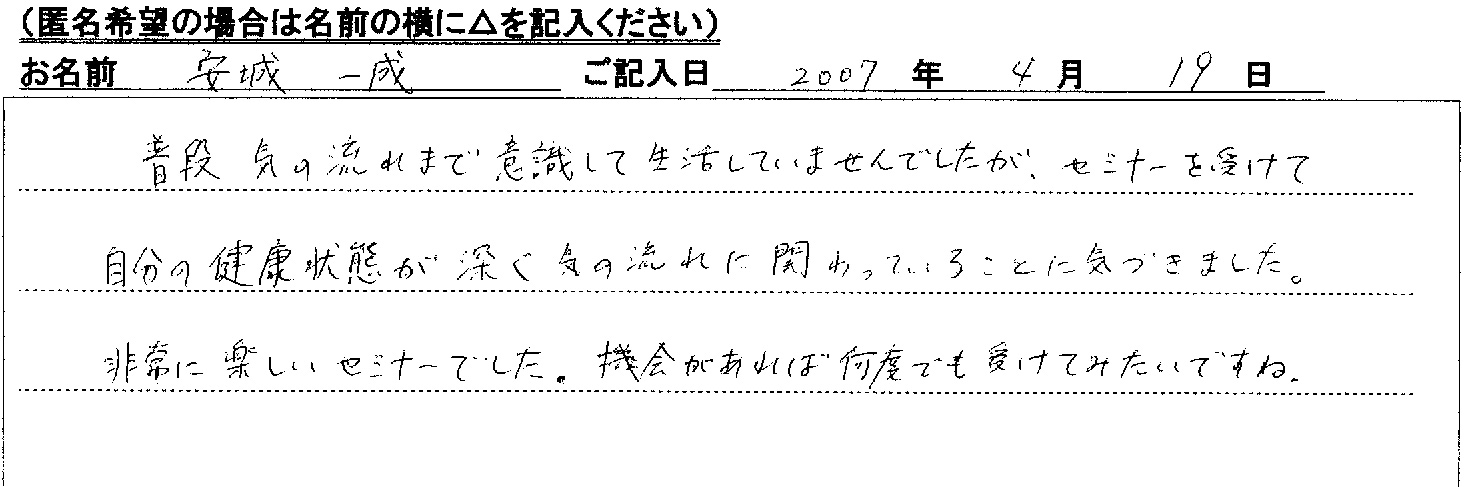 （匿名希望の場合は名前の横に△を記入ください）
お名前 安城 一成 ご記入日 2007 年 4 月 19 日
普段 気の流れまで意識して生活していませんでしたが、セミナーを受けて
自分の健康状態が深く気の流れに関わっていることに気づきました。
非常に楽しいセミナーでした。機会があれば何度でも受けてみたいですね。